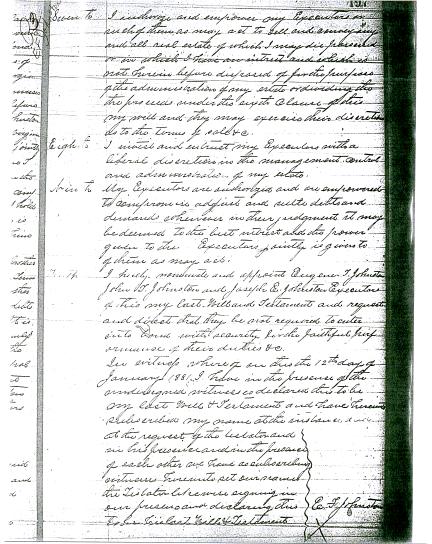 157
Seven th I authorize and empower my Executors or
such of them as may act to sell and convey any
and all real estate of which I may die possessed
or in which I have an interest and which is
not herein before disposed of for the purposes
of the administration of my estate or dividing the
the proceeds under the sixth Clause of this
my will and they may exercise their discretion
as to the terms of sale &c.
Eigh th I invest and entrust my Executors with a
liberal discretion in the management, control
and administration of my estate.
Nin th My Executors are authorized and are empowered
to compromise adjust and settle debts and
demands whenever in their judgment it may
be deemed to the best interest and the power
given to the Executors jointly is given to
of them as may act.
I hereby nominate and appoint Eugene T. Johnston
John W Johnston and Joseph E. Johnston Executors
of this my Last Will and Testament and request
and direct that they be not required to enter
into Bond with security for the faithful perf
ormance of their duties &c.
In witness whereof on this the 12th day of
January 1881, I have in the presence of the
undersigned witnesses declared this to be
my Last Will & Testament and have hereunto
subscribed my name at the instance and
at the request of the testator and
in his presence and in the presence
of each other we have as subscribing
witnesses hereunto set our names
the Testator likewise signing in
our presence and declaring this E. T. Johnston
to be his Last Will & Testament